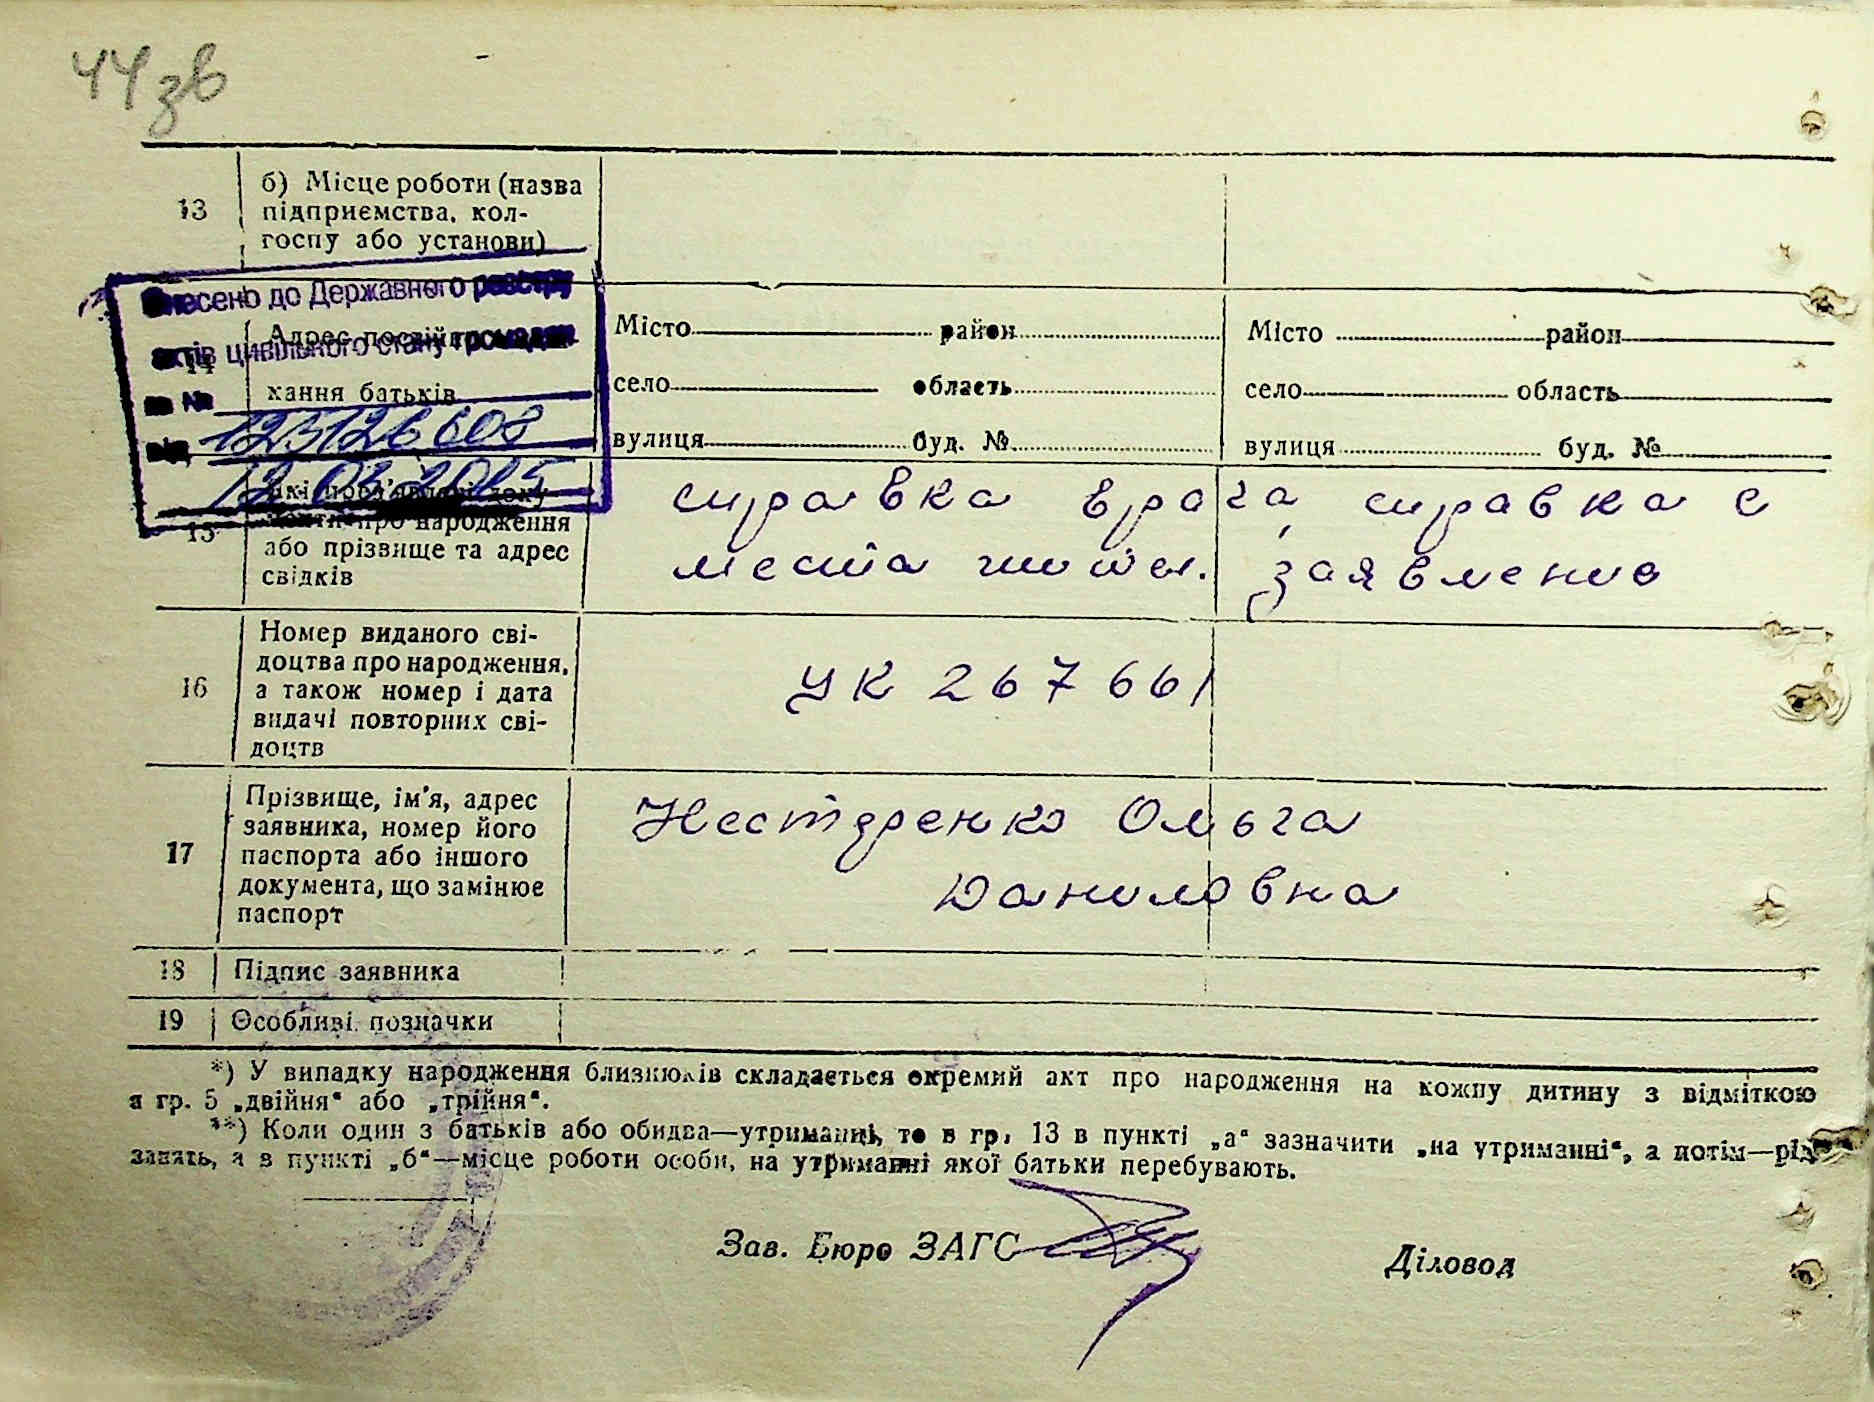 44 зв
13
б) Місце роботи (назва
підприємства, кол-
госпу або установи)
Внесено до Державного реєстру
актів цивільного стану громадян
за №
123126608
від
12.03.2015
14
Адрес постій
кання батьків
Місто район
село область
вулиця буд. №
Місто район
село область
вулиця буд. №
15
Які пред'явлені доку-
менти про народження
або прізвище та адрес
свідків
справка врача, справка с
места жител. заявление
16
Номер виданого сві-
доцтва про народження,
а також номер і дата
видачі повторних сві-
доцтв
УК 267661
17
Прізвище, ім'я, адрес
заявника, номер його
паспорта або іншого
документа, що замінює
паспорт
Нестеренко Ольга
Даниловна
18 Підпис заявника
19 Особливі позначки
*) У випадку народження близнюків складається окремий акт про народження на кожну дитину з відміткою
в гр. 5 „двійня“ або „трійня“.
**) Коли один з батьків або обидва—утриманці, то в гр. 13 в пункті „а“ зазначити „на утриманні“, а потім—рід
занять, а в пункті „б“—місце роботи особи, на утриманні якої батьки перебувають.
Зав. Бюро ЗАГС
Діловод